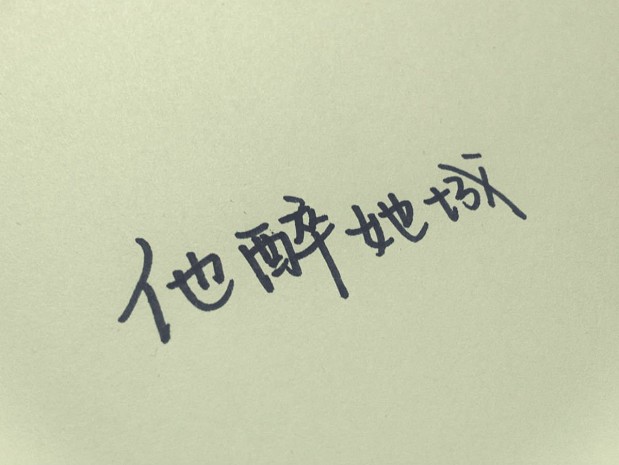 他醉她城